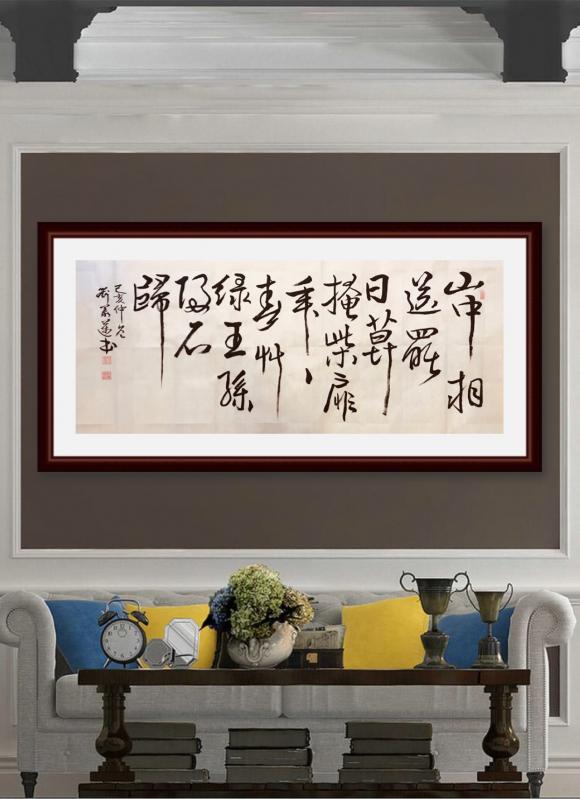 山中相
送罷
日暮
掩柴扉
年年
春草
绿王孫
归不
歸
己亥仲冬
书